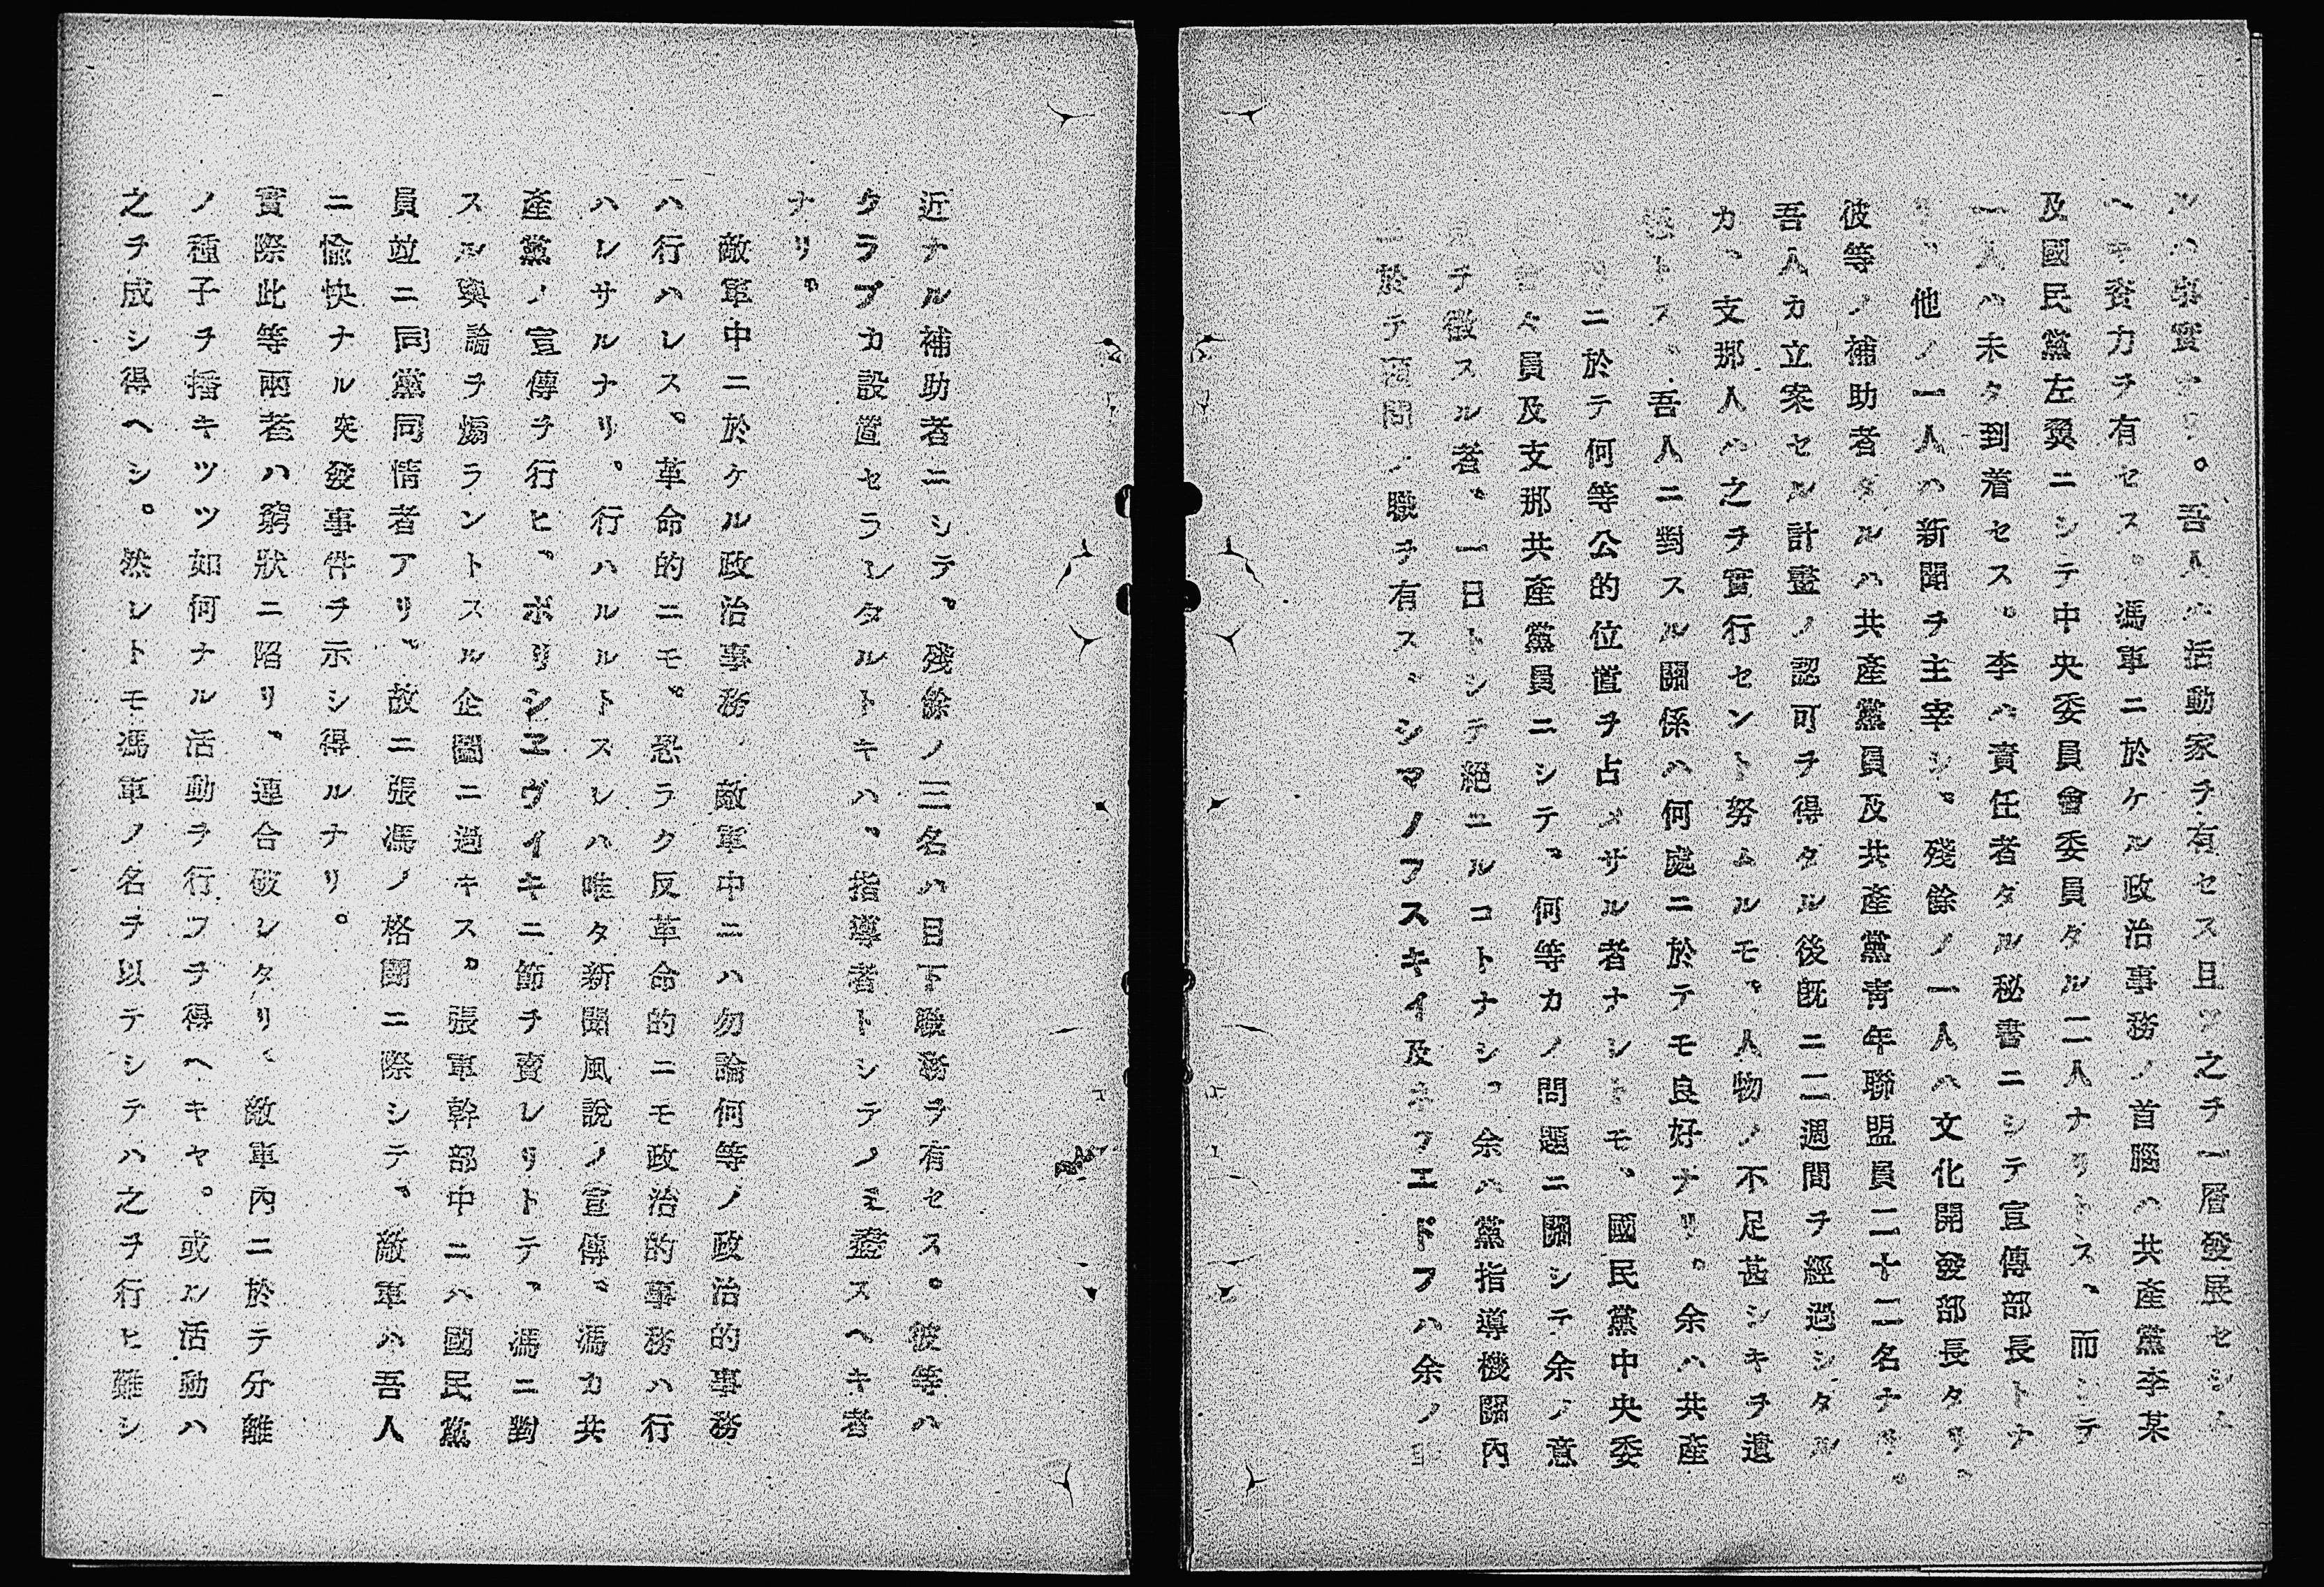 ルハ事實ナリ。吾人ハ活動家ヲ有セス且ツ之ヲ一層發展セシム
ヘキ資力ヲ有セス。馮軍ニ於ケル政治事務ノ首腦ハ共產黨李某
及國民黨左翼ニシテ中央委員會委員タル二人ナリトス、而シテ
一人ハ未タ到着セス。李ハ責任者タル秘書ニシテ宣傳部長トナ
リ、他ノ一人ハ新聞ヲ主宰シ、殘餘ノ一人ハ文化開發部長タリ、
彼等ノ補助者タルハ共產黨員及共產黨靑年聯盟員二十二名ナリ。
吾人カ立案セル計畫ノ認可ヲ得タル後既ニ二週間ヲ經過シタル
カ、支那人ハ之ヲ實行セント努ムルモ、人物ノ不足甚シキヲ遺
憾トス。吾人ニ對スル關係ハ何處ニ於テモ良好ナリ。余ハ共產
ニ於テ何等公的位置ヲ占メサル者ナシトモ、國民黨中央委
々員及支那共產黨員ニシテ、何等カノ問題ニ關シテ余ノ意
ヲ徵スル者、一日トシテ絕ニルコトナシ、余ハ黨指導機關內
ニ於テ顧問ノ職ヲ有ス。シマノフスキイ及ネフエドフハ余ノ
近ナル補助者ニシテ、殘餘ノ三名ハ目下職務ヲ有セス。彼等ハ
クラブカ設置セラレタルトキハ、指導者トシテノミ盡スヘキ者
ナリ。
敵軍中ニ於ケル政治事務、敵軍中ニハ勿論何等ノ政治的事務
ハ行ハレス、革命的ニモ、恐ラク反革命的ニモ政治的事務ハ行
ハレサルナリ。行ハルルトスレハ唯タ新聞風說ノ宣傳、馮カ共
產黨ノ宣傳ヲ行ヒ、ボリシエヴイキニ節ヲ賣レリトテ、馮ニ對
スル輿論ヲ煽ラントスル企圖ニ過キス。張軍幹部中ニハ國民黨
員竝ニ同黨同情者アリ、故ニ張馮ノ格鬪ニ際シテ、敵軍ハ吾人
ニ愉快ナル突發事件ヲ示シ得ルナリ。
實際此等兩者ハ窮狀ニ陷リ、連合破レタリ、敵軍內ニ於テ分離
ノ種子ヲ播キツツ如何ナル活動ヲ行フヲ得ヘキヤ。或ル活動ハ
之ヲ成シ得ヘシ。然レトモ馮軍ノ名ヲ以テシテハ之ヲ行ヒ難シ